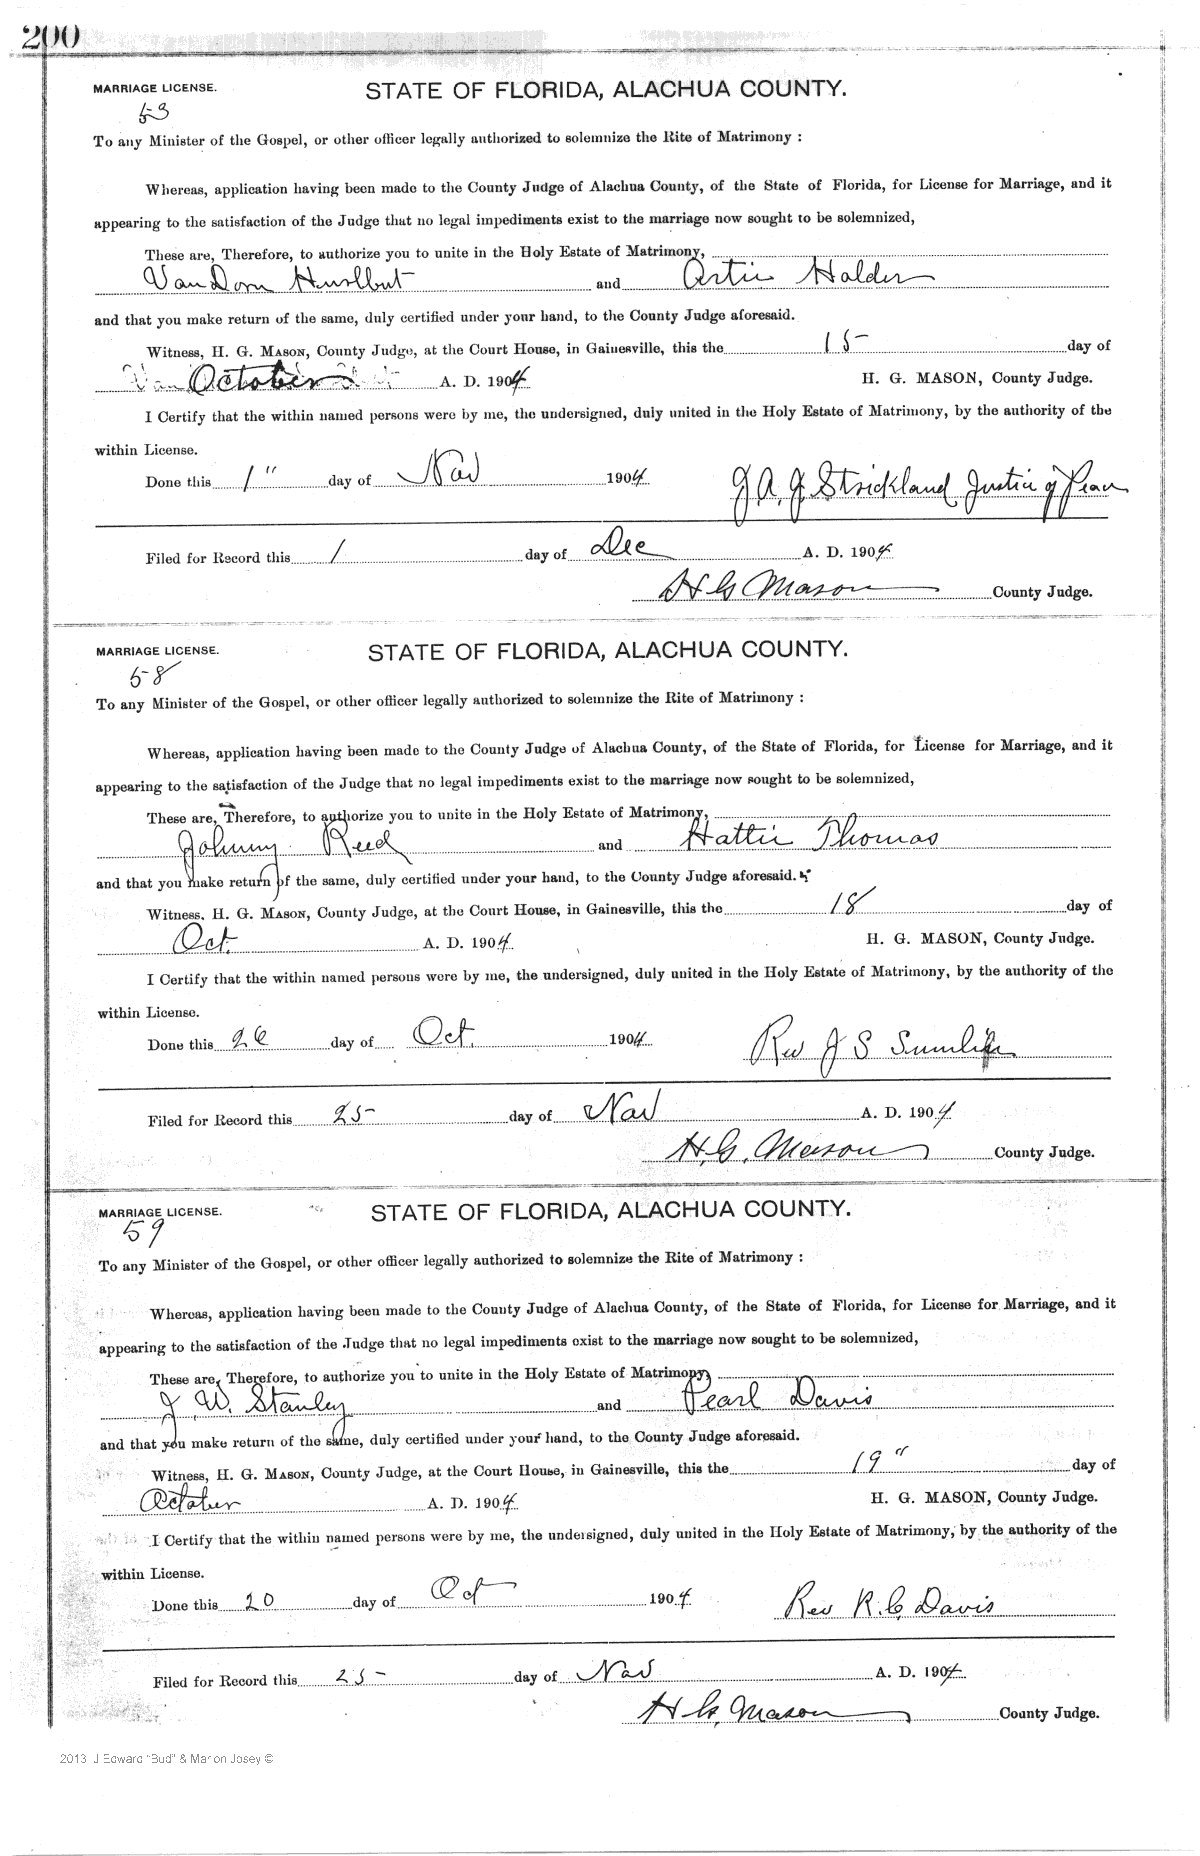 200
MARRIAGE LICENSE. STATE OF FLORIDA, ALACHUA COUNTY.
53
To any Minister of the Gospel, or other officer legally authorized to solemnize the Rite of Matrimony :
Whereas, application having been made to the County Judge of Alachua County, of the State of Florida, for License for Marriage, and it
appearing to the satisfaction of the Judge that no legal impediments exist to the marriage now sought to be solemnized,
These are, Therefore, to authorize you to unite in the Holy Estate of Matrimony,
Van Dorn Hurlbut and Artie Holder
and that you make return of the same, duly certified under your hand, to the County Judge aforesaid.
Witness, H. G. MASON, County Judge, at the Court House, in Gainesville, this the 15 day of
October A. D. 1904 H. G. MASON, County Judge.
I Certify that the within named persons were by me, the undersigned, duly united in the Holy Estate of Matrimony, by the authority of the
within License.
Done this 1" day of Nov 1904 J A J Strickland Justice of Peace
Filed for Record this 1 day of Dec A. D. 1904
H G Mason County Judge.
MARRIAGE LICENSE. STATE OF FLORIDA, ALACHUA COUNTY.
58
To any Minister of the Gospel, or other officer legally authorized to solemnize the Rite of Matrimony :
Whereas, application having been made to the County Judge of Alachua County, of the State of Florida, for License for Marriage, and it
appearing to the satisfaction of the Judge that no legal impediments exist to the marriage now sought to be solemnized,
These are, Therefore, to authorize you to unite in the Holy Estate of Matrimony,
Johnny Reed and Hattie Thomas
and that you make return of the same, duly certified under your hand, to the County Judge aforesaid.
Witness, H. G. MASON, County Judge, at the Court House, in Gainesville, this the 18 day of
Oct. A. D. 1904 H. G. MASON, County Judge.
I Certify that the within named persons were by me, the undersigned, duly united in the Holy Estate of Matrimony, by the authority of the
within License.
Done this 26 day of Oct. 1904 Rev J S
Filed for Record this 25 day of Nov A. D. 1904
H. G. Mason County Judge.
MARRIAGE LICENSE. STATE OF FLORIDA, ALACHUA COUNTY.
59
To any Minister of the Gospel, or other officer legally authorized to solemnize the Rite of Matrimony :
Whereas, application having been made to the County Judge of Alachua County, of the State of Florida, for License for Marriage, and it
appearing to the satisfaction of the Judge that no legal impediments exist to the marriage now sought to be solemnized,
These are, Therefore, to authorize you to unite in the Holy Estate of Matrimony,
J. W. Stanley and Pearl Davis
and that you make return of the same, duly certified under your hand, to the County Judge aforesaid.
Witness, H. G. MASON, County Judge, at the Court House, in Gainesville, this the 19" day of
October A. D. 1904 H. G. MASON, County Judge.
I Certify that the within named persons were by me, the undersigned, duly united in the Holy Estate of Matrimony, by the authority of the
within License.
Done this 20 day of Oct 1904 Rev R. C. Davis
Filed for Record this 25 day of Nov A. D. 1904
H G. Mason County Judge.
2013 J Edward "Bud" & Marion Josey ©